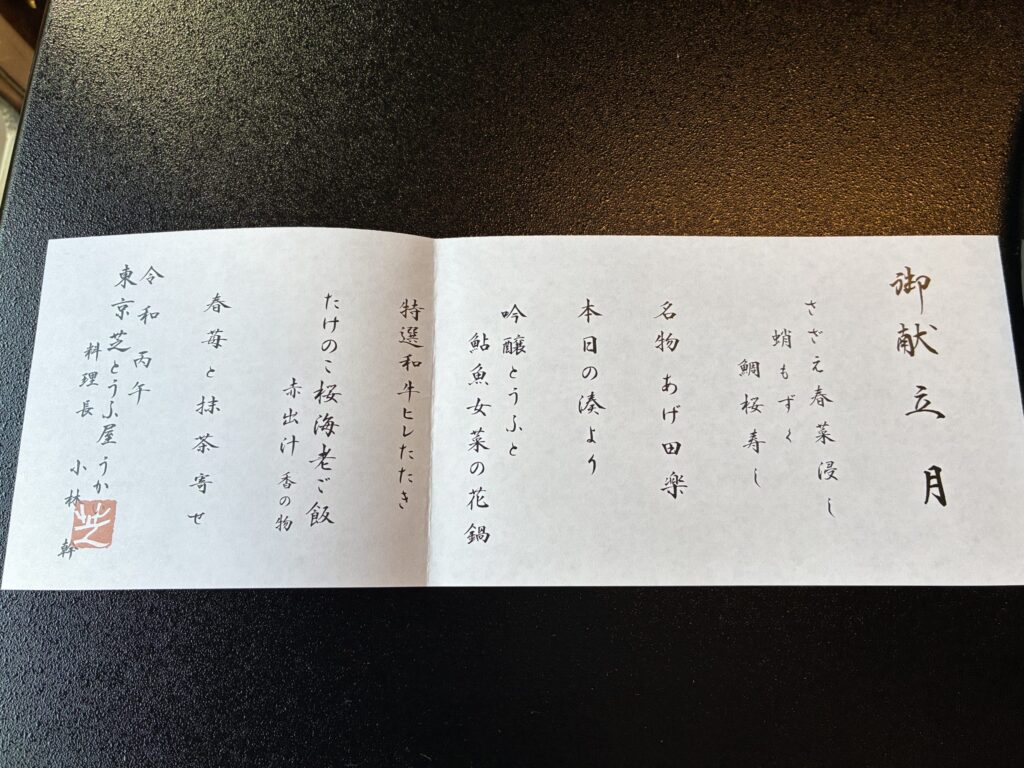 御献立 月
さざえ春菜浸し
蛸もずく
鯛桜寿し
名物 あげ田楽
本日の湊より
吟醸とうふと
鮎魚女菜の花鍋
特選和牛ヒレたたき
たけのこ桜海老ご飯
赤出汁 香の物
春苺と抹茶寄せ
令和丙午
東京芝とうふ屋うか
料理長 小林 幹
芝